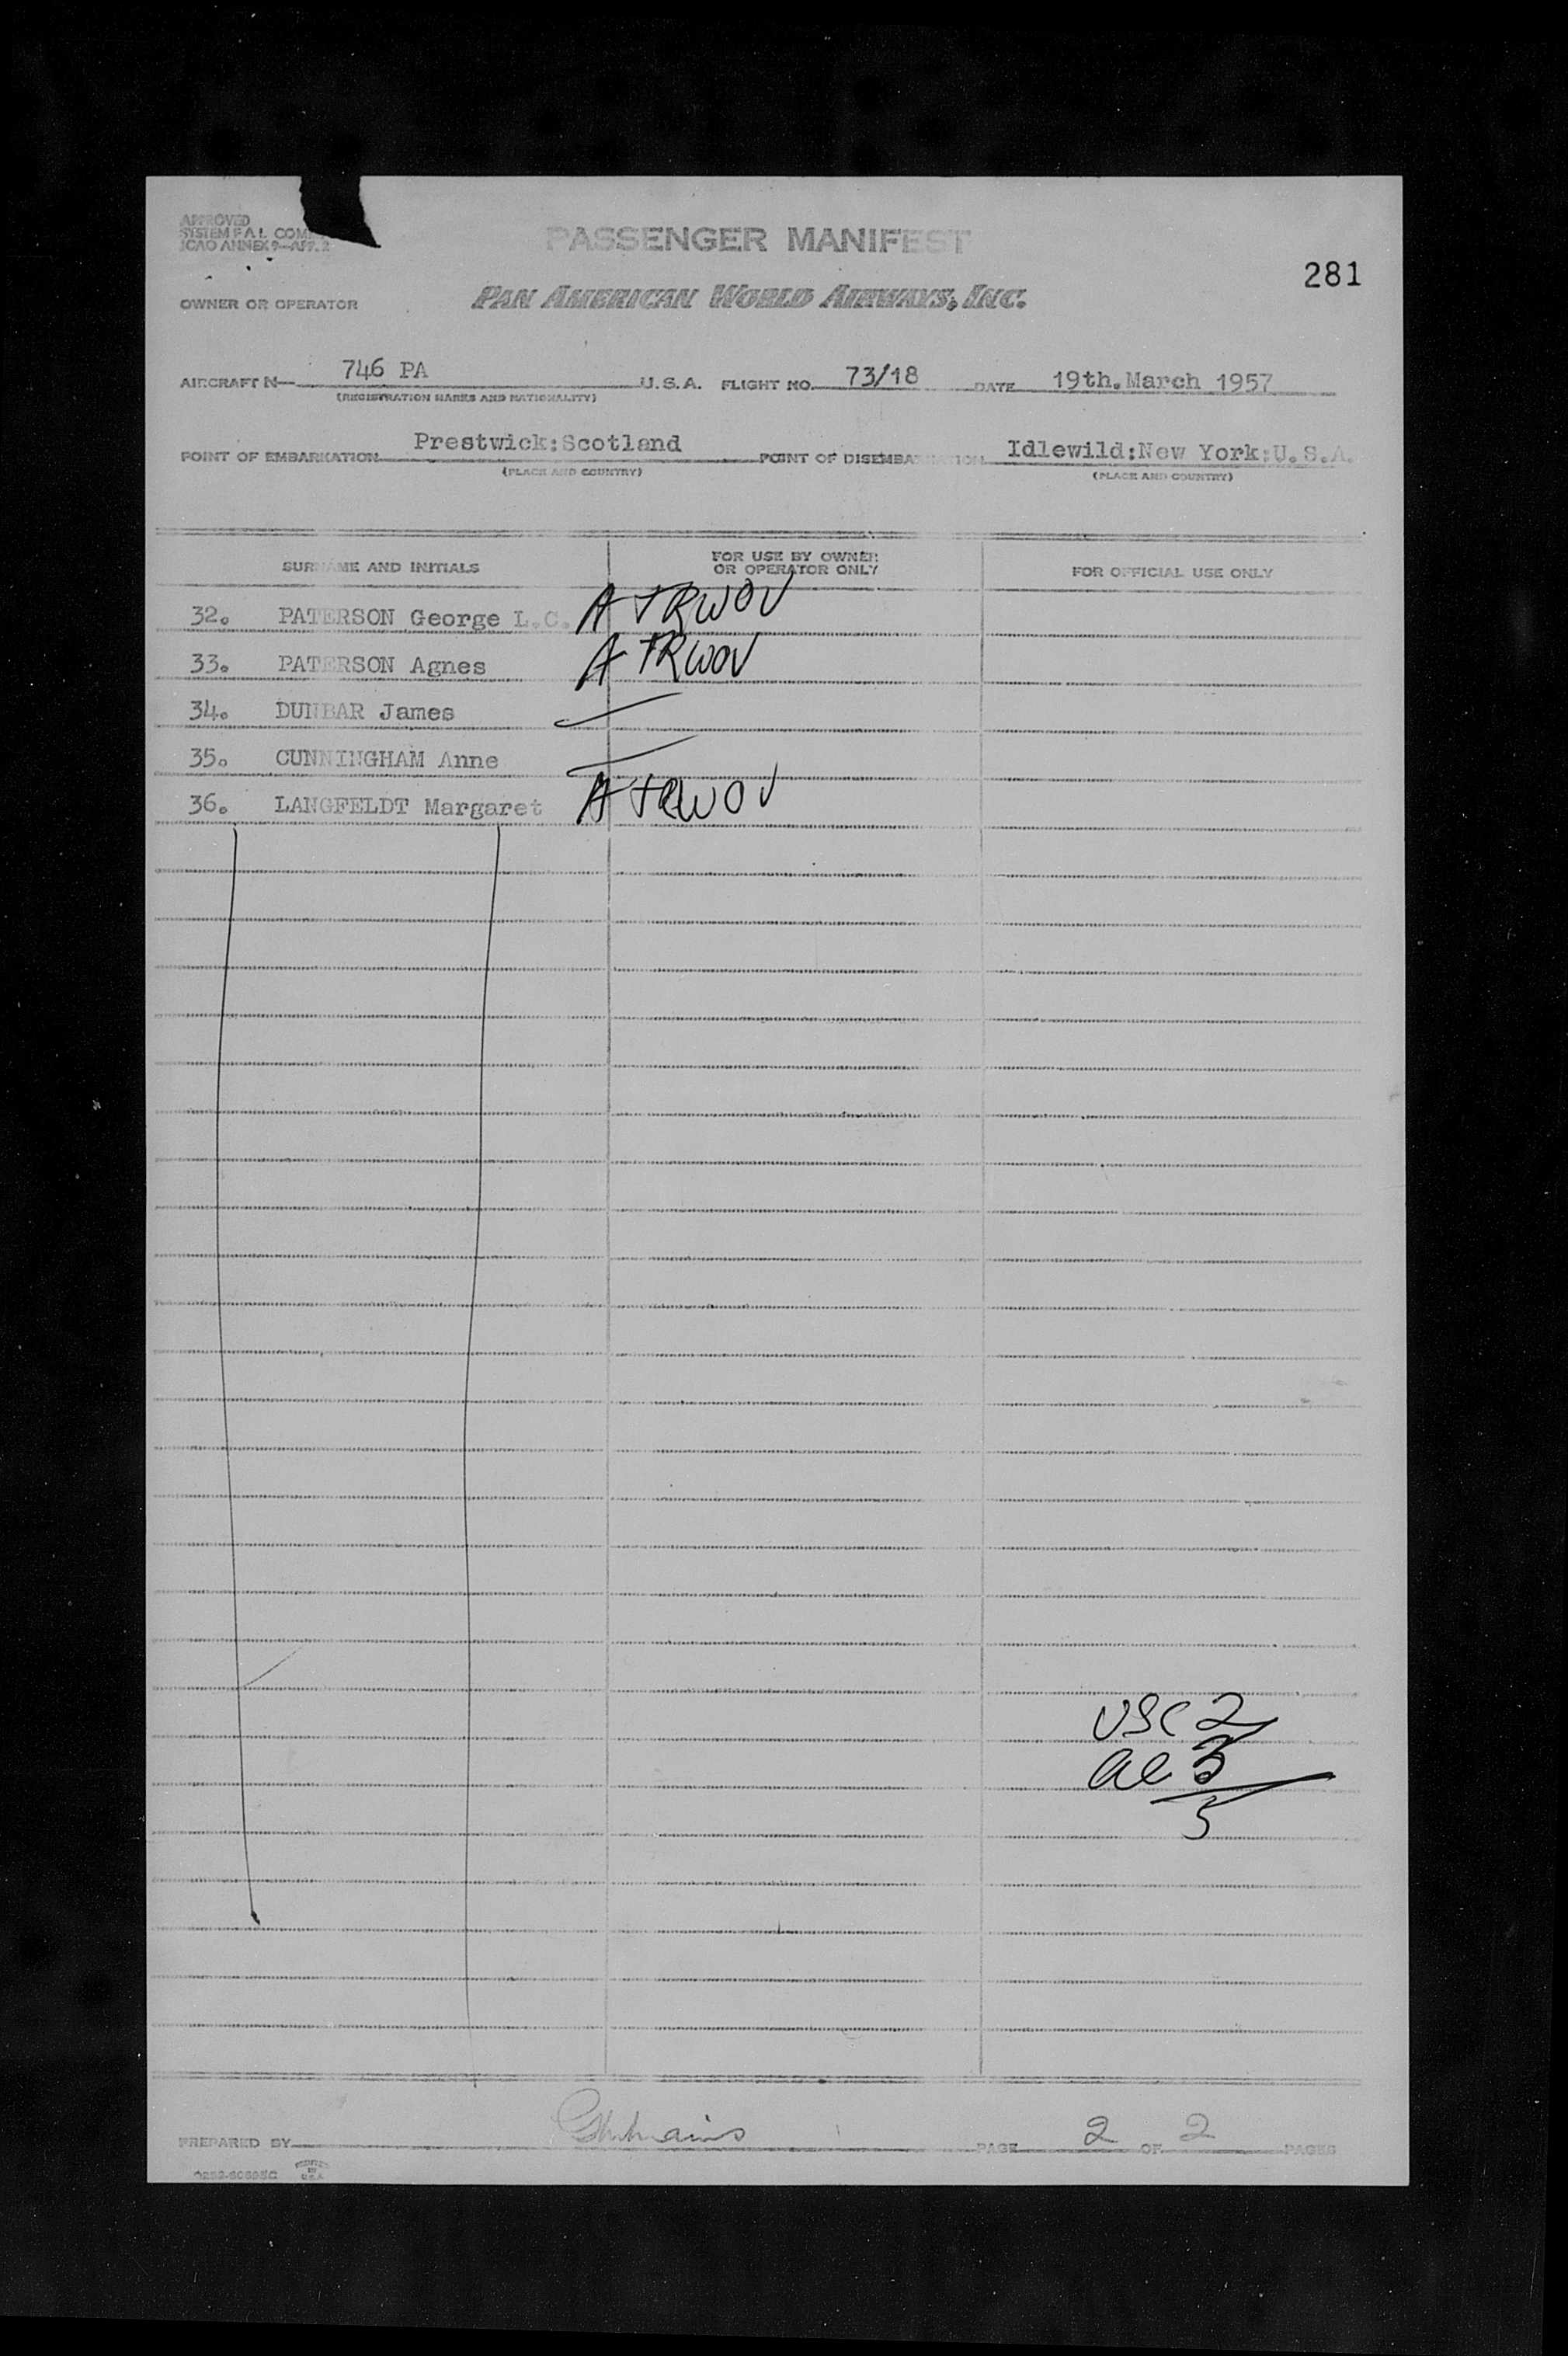 APPROVED
SYSTEM F A L COM
ICAO ANNEX 9—APP. 2
PASSENGER MANIFEST
281
OWNER OR OPERATOR PAN AMERICAN WORLD AIRWAYS, INC.
AIRCRAFT N— 746 PA U.S.A. FLIGHT NO. 73/18 DATE 19th.March 1957
(REGISTRATION MARKS AND NATIONALITY)
POINT OF EMBARKATION Prestwick:Scotland POINT OF DISEMBARKATION Idlewild:New York:U.S.A.
(PLACE AND COUNTRY) (PLACE AND COUNTRY)
SURNAME AND INITIALS FOR USE BY OWNER OR OPERATOR ONLY FOR OFFICIAL USE ONLY
32. PATERSON George L.C. A TRWOV
33. PATERSON Agnes A TRWOV
34. DUNBAR James
35. CUNNINGHAM Anne
36. LANGFELDT Margaret A TRWOV
USC 2
al 3
5
PREPARED BY PAGE 2 OF 2 PAGES
PRINTED IN U.S.A.